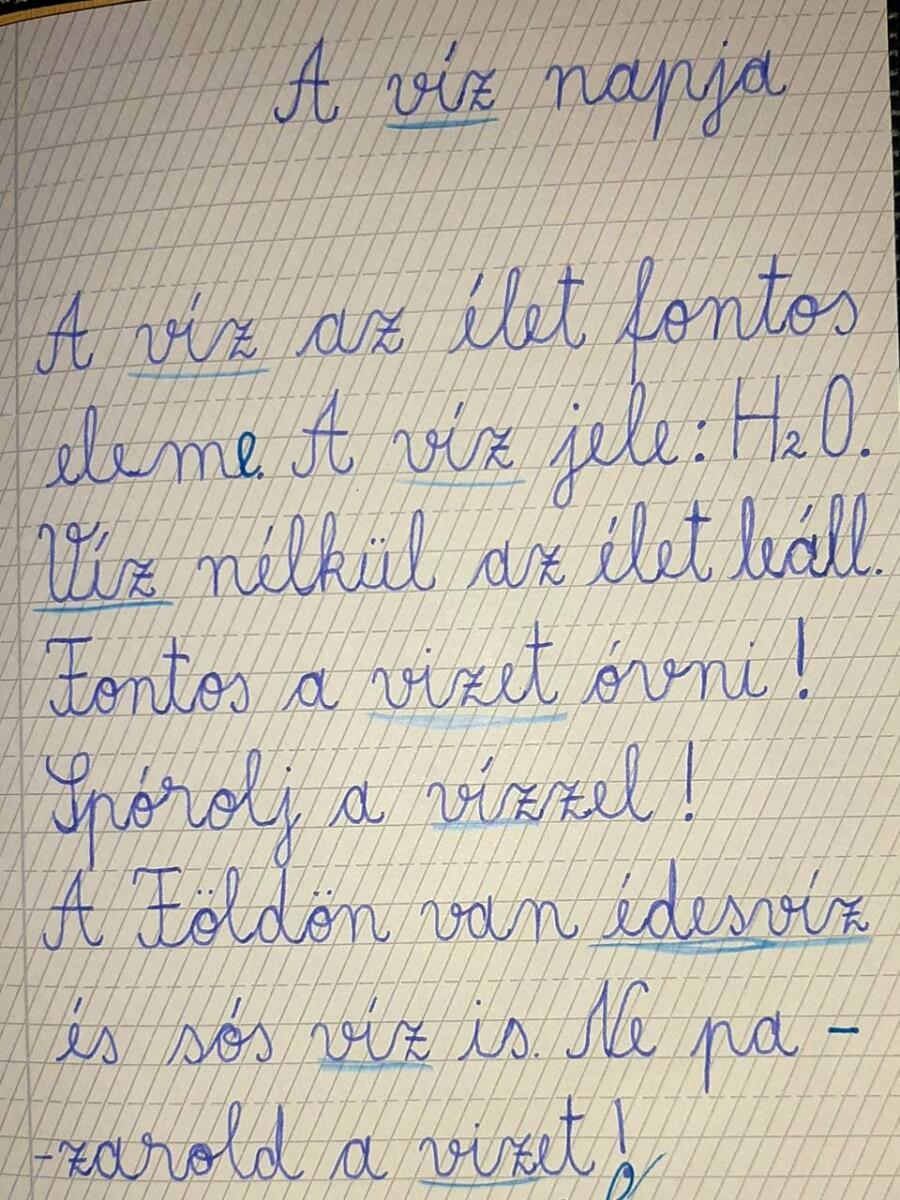 A víz napja
A víz az élet fontos
eleme. A víz jele: H₂O.
Víz nélkül az élet leáll.
Fontos a vizet óvni!
Spórolj a vízzel!
A Földön van édesvíz
és sós víz is. Ne pa-
-zarold a vizet!